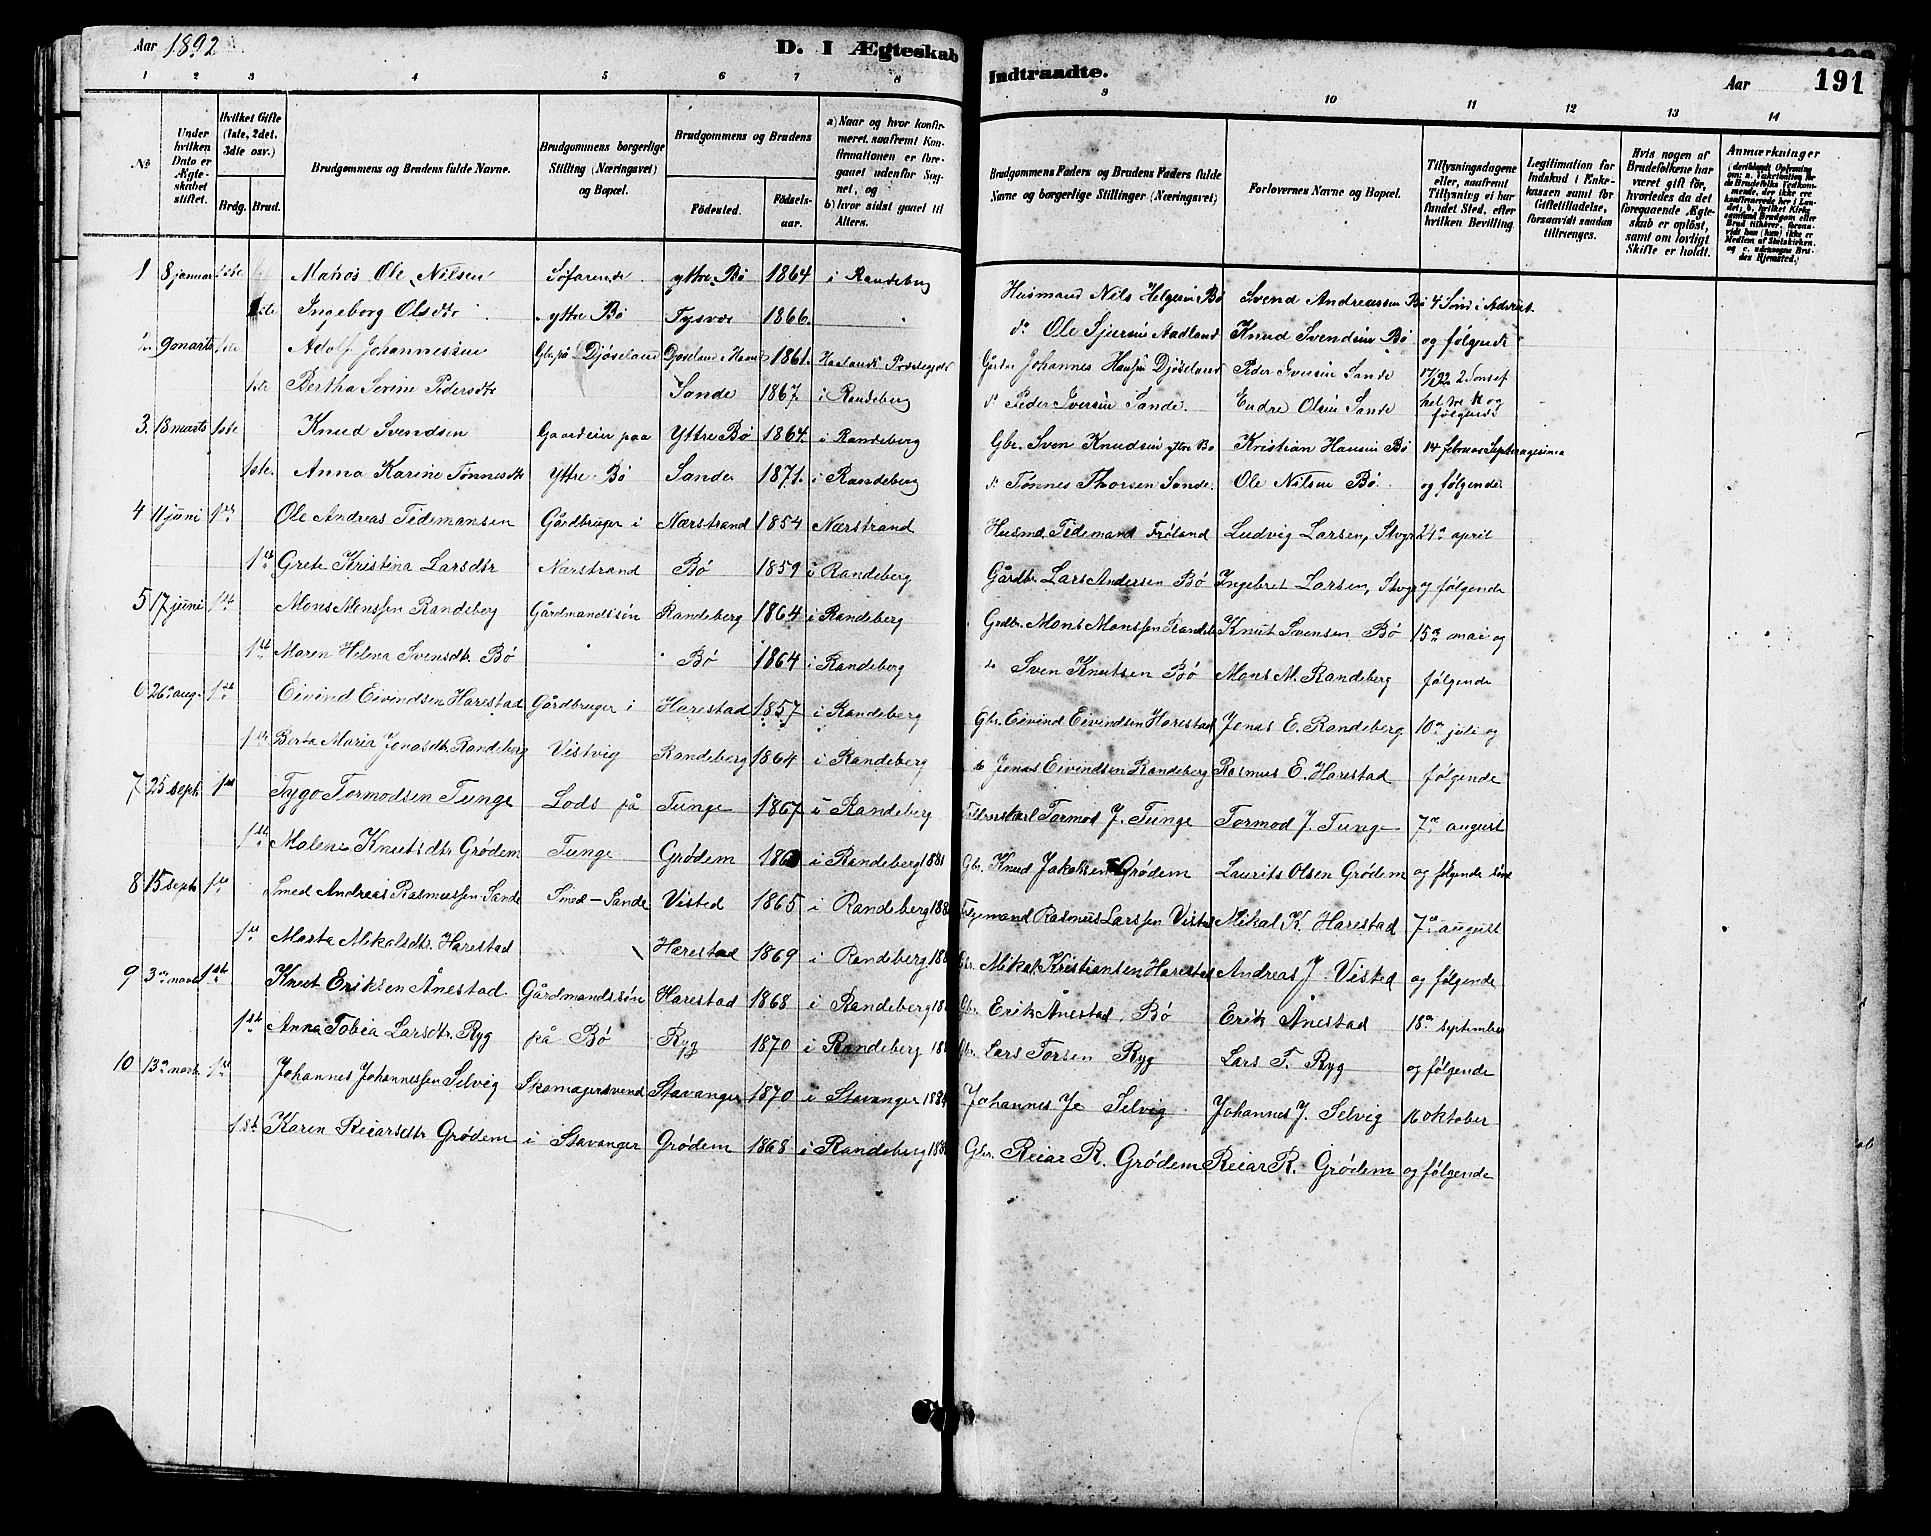 Aar 1892
D. I Ægteskab Indtraadte.
Aar
191
1 2 3 4 5 6 7 8 9 10 11 12 13 14
No
Under hvilken Dato er Ægteskabet stiftet.
Hvilket Gifte (1ste, 2det, 3die osv.)
Brdg. Brud.
Brudgommens og Brudens fulde Navne.
Brudgommens borgerlige Stilling (Næringsvei) og Bopæl.
Brudgommens og Brudens
Fødested. Fødselsaar.
a) Naar og hvor konfirmeret, saafremt Konfirmationen er foregaaet udenfor Sognet, og b) hvor sidst gaaet til Alters.
Brudgommens Faders og Brudens Faders fulde Navne og borgerlige Stillinger (Næringsvei)
Forlovernes Navne og Bopæl.
Tillysningsdagene eller, saafremt Tillysning ei har fundet Sted, efter hvilken Bevilling.
Legitimation for Indskud i Enkekassen samt for Giftetilladelse, forsaavidt saadan tiltrænges.
Hvis nogen af Brudefolkene har været gift før, hvorledes da det foregaaende Ægteskab er opløst, samt om lovligt Skifte er holdt.
Anmærkninger
1 8 januar 1ste Maños Ole Nilsen Søfarende yttre Bø 1864 i Randeberg Husmand Nils Helgesen Bø Svend Andreassen Bø 4 Sønd i Advent
1ste Ingeborg Olsdtr yttre Bø Tysvær 1866. do Ole Sjursen Aadland Knud Svendsen Bø og følgende
2. 9 marts 1ste Adolf Johannessen Gbr. på Djøseland Djøseland 1861. Haalands Præstegjeld Gårdbr Johannes Hansen Djøseland Peder Iversen Sande
1ste Bertha Serine Pedersdtr Sande 1867. i Randeberg do Peder Iversen Sande. Endre Olsen Sande følgende
3. 18 marts 1ste Knud Svendsen Gaardeier paa Yttre Bø 1864. i Randeberg Gbr. Sven Knudsen yttre Bø Kristian Hansen Bø 14 februar Septuagesima
1ste. Anna Karine Tønnesdtr Yttre Bø Sande 1871. i Randeberg do Tønnes Thorsen Sande. Ole Nilsen Bø. og følgende
4 11 juni 1ste Ole Andreas Tidemansen Gårdbruger i Nærstrand 1854 Nærstrand Husmd Tidemand Frøland Ludvig Larsen, Stvgr 24de april
1ste Grete Kristina Larsdtr Nærstrand Bø 1859 i Randeberg Gårdbr Lars Andersen Bø Ingebret Larsen, Stvgr og følgende
5 17 juni 1ste Mons Monssen Randeberg Gårdmandssøn Randeberg 1864 i Randeberg Grdbr. Mons Monssen Randeb Knut Svensen Bø 15de mai og
1ste Maren Helena Svensdtr Bø Bø 1864 i Randeberg do Sven Knutsen Bø Mons M. Randeberg følgende
6 26de aug. 1ste Eivind Eivindsen Harestad Gårdbruger i Harestad 1857 i Randeberg Gbr. Eivind Eivindsen Harestad Jonas E. Randeberg 10de juli og
1ste Berta Maria Jonasdtr Randeberg Vistvig Randeberg 1864 i Randeberg do Jonas Eivindsen Randeberg Rasmus E. Harestad følgende
7 25 sept. 1ste Tygo Tormodsen Tunge Lods på Tunge 1867 i Randeberg Tormod J. Tunge Tormod J. Tunge 7de august
1ste Malene Knutsdtr Grødem Tunge Grødem i Randeberg 1881 Gbr. Knud Jakobsen Grødem Laurits Olsen Grødem og følgende
8 15 sept. 1ste Smed Andreas Rasmussen Sande Smed - Sande Visted 1865 i Randeberg Rasmus Larssen Visted Mikal K. Harestad 7de august
1ste Marta Mikalsdtr. Harestad Harestad 1869 i Randeberg Gbr. Mikal Kristiansen Harestad Andreas J Visted og følgende
9 3de 1ste Knut Eriksen Ånestad Gårdmandssøn Harestad 1868 i Randeberg Gbr. Erik Ånestad, Bø Erik Ånestad 18de september
1ste Anna Tobia Larsdtr. Ryg på Bø Ryg 1870 i Randeberg Gbr Lars Torsen Ryg Lars T. Ryg og følgende
10 13de 1ste Johannes Johannessen Selvig Skomagersvend Stavanger 1870 i Stavanger Johannes Selvig Johannes J. Selvig 16 oktober
1ste Karen Reiarsdtr Grødem i Stavanger Grødem 1868 i Randeberg Gbr. Reiar R. Grødem Reiar R. Grødem og følgende